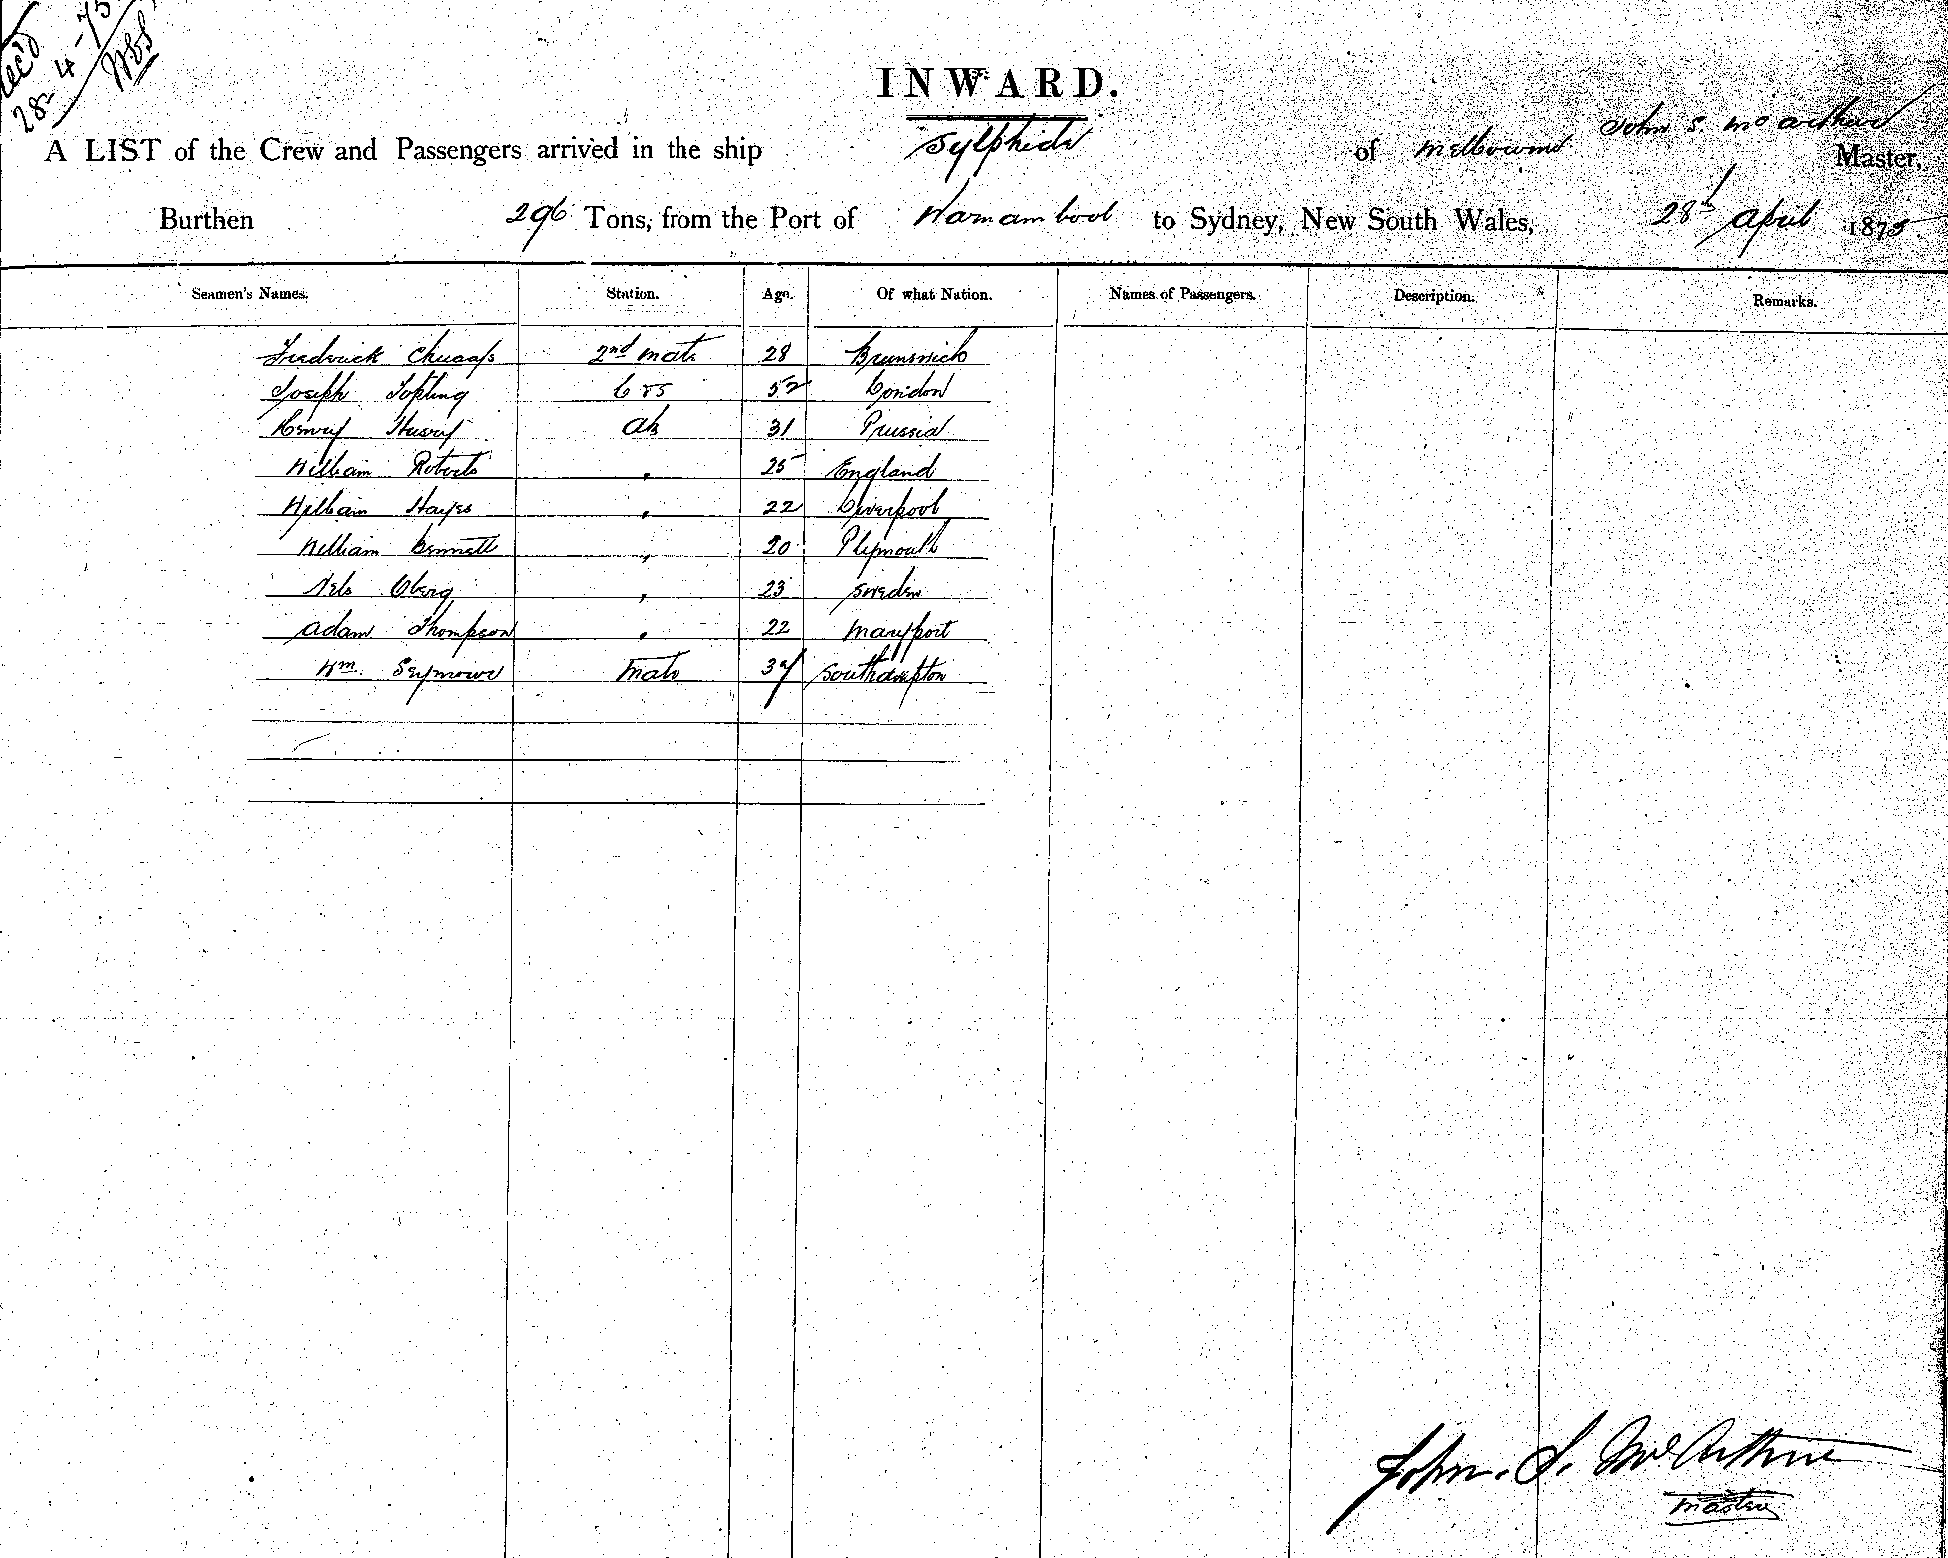 Rec'd
28-4-75
INWARD.
A LIST of the Crew and Passengers arrived in the ship Sylphide of Melbourne John S. McArthur Master,
Burthen 296 Tons, from the Port of Warnambool to Sydney, New South Wales, 28th April 1875
Seamen's Names. Station. Age. Of what Nation. Names of Passengers. Description. Remarks.
Frederick 2nd Mate 28 Brunswick
Joseph Topling 52 London
Henry 31 Prussia
William Roberts " 25 England
William Hayes " 22 Liverpool
William Bennett " 20 Plymouth
Nels Oberg " 23 Sweden
Adam Thompson " 22 Maryport
Wm. Seymour Mate Southampton
John. S. McArthur
Master